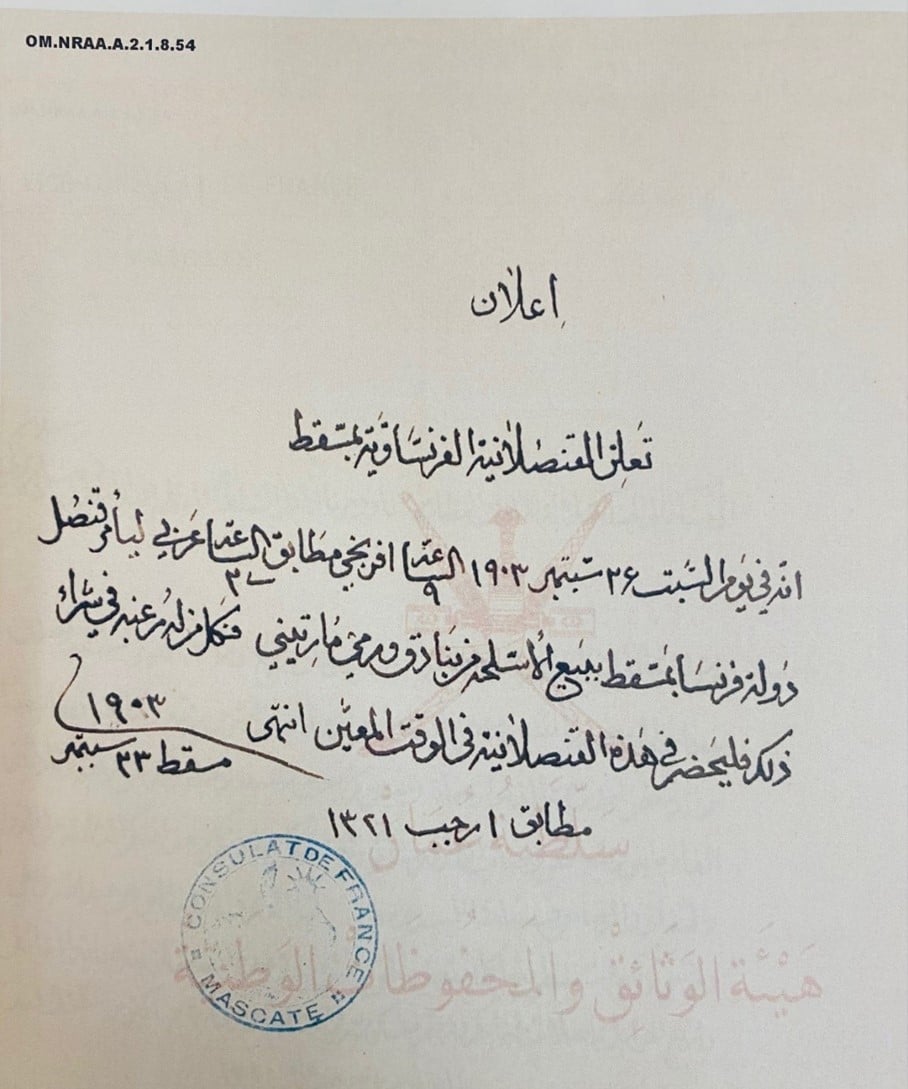 OM.NRAA.A.2.1.8.54
اعلان
تعلن القنصلانية الفرنساوية بمسقط
انه في يوم السبت ٢٦ ستمبر ١٩٠٣ الساعة ٩ افرنجي مطابق الساعة ٣ عربي ليأمر قنصل
دولة فرنسا بمسقط ببيع الأسلحة من بنادق ورمي مارتيني فكل من له رغبة في شراء
ذلك فليحضر في هذه القنصلانية في الوقت المعين انتهى
مسقط ٢٣ سبتمبر ١٩٠٣
مطابق ١ رجب ١٣٢١
CONSULAT DE FRANCE
MASCATE
سلطنة عمان
هيئة الوثائق والمحفوظات الوطنية